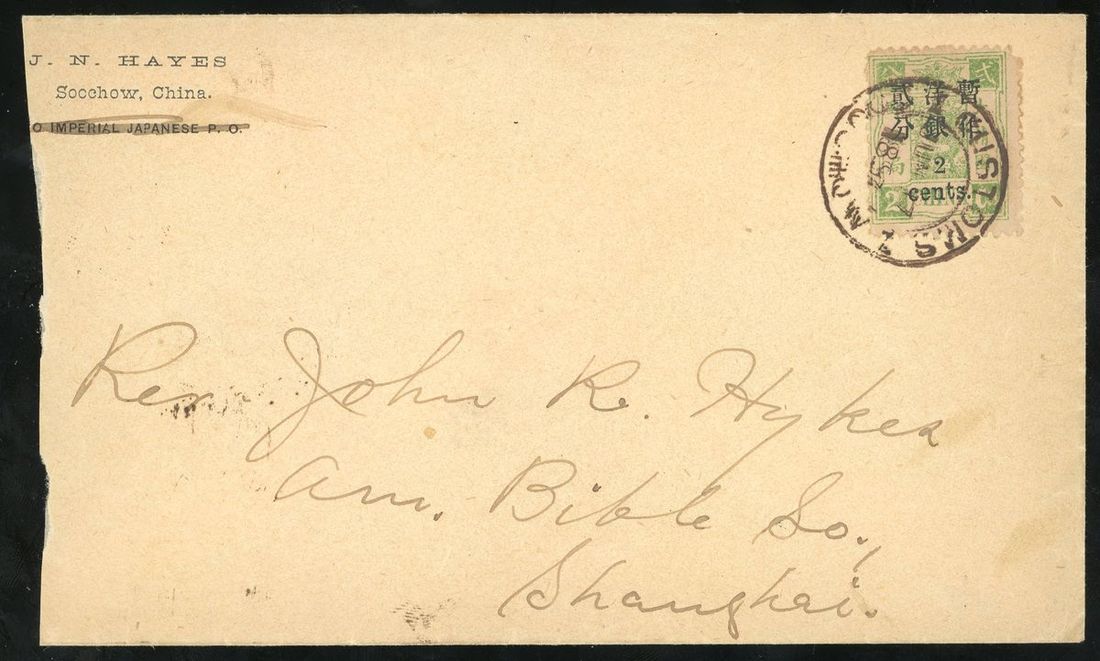 J. N. HAYES
Soochow, China.
O IMPERIAL JAPANESE P. O.
暫作
洋銀
貳分
2
cents.
2
CUSTOMS
SOOCHOW
Rev John R. Hykes
Am. Bible So.,
Shanghai.